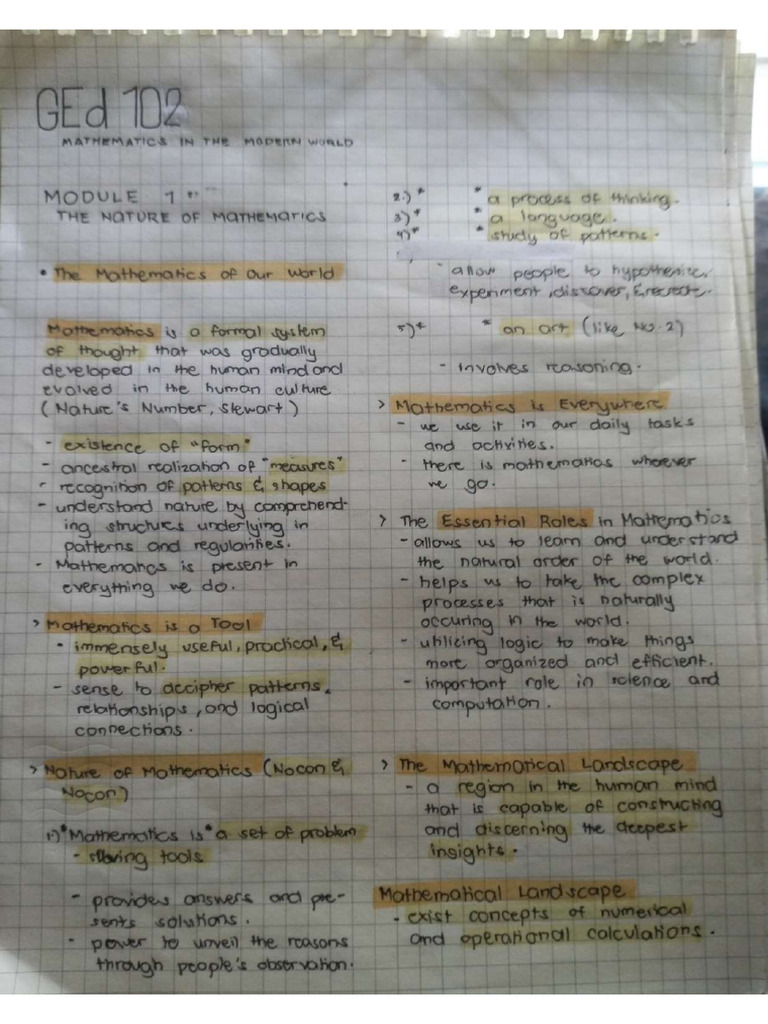 GEd 102
MATHEMATICS IN THE MODERN WORLD
MODULE 1
THE NATURE OF MATHEMATICS
• The Mathematics of Our World
Mathematics is a formal system
of thought that was gradually
developed in the human mind and
evolved in the human culture
(Nature's Number, Stewart)
- existence of "form"
- ancestral realization of "measures"
- recognition of patterns & shapes
- understand nature by comprehend-
ing structures underlying in
patterns and regularities.
- Mathematics is present in
everything we do.
> Mathematics is a Tool
- immensely useful, practical, &
powerful.
- sense to decipher patterns,
relationships, and logical
connections.
> Nature of Mathematics (Nocon &
Nocon)
1.)* Mathematics is * a set of problem
- solving tools
- provides answers and pre-
sents solutions.
- power to unveil the reasons
through people's observation.
2.)* * a process of thinking.
3)* * a language.
4)* * study of patterns.
- allow people to hypothenize,
experiment, discover, & recreate.
5)* * an art (like No. 2)
- involves reasoning.
> Mathematics is Everywhere
- we use it in our daily tasks
and activities.
- there is mathematics wherever
we go.
> The Essential Roles in Mathematics
- allows us to learn and understand
the natural order of the world.
- helps us to take the complex
processes that is naturally
occuring in the world.
- utilizing logic to make things
more organized and efficient.
- important role in science and
computation.
> The Mathematical Landscape
- a region in the human mind
that is capable of constructing
and discerning the deepest
insights.
Mathematical Landscape
- exist concepts of numerical
and operational calculations.